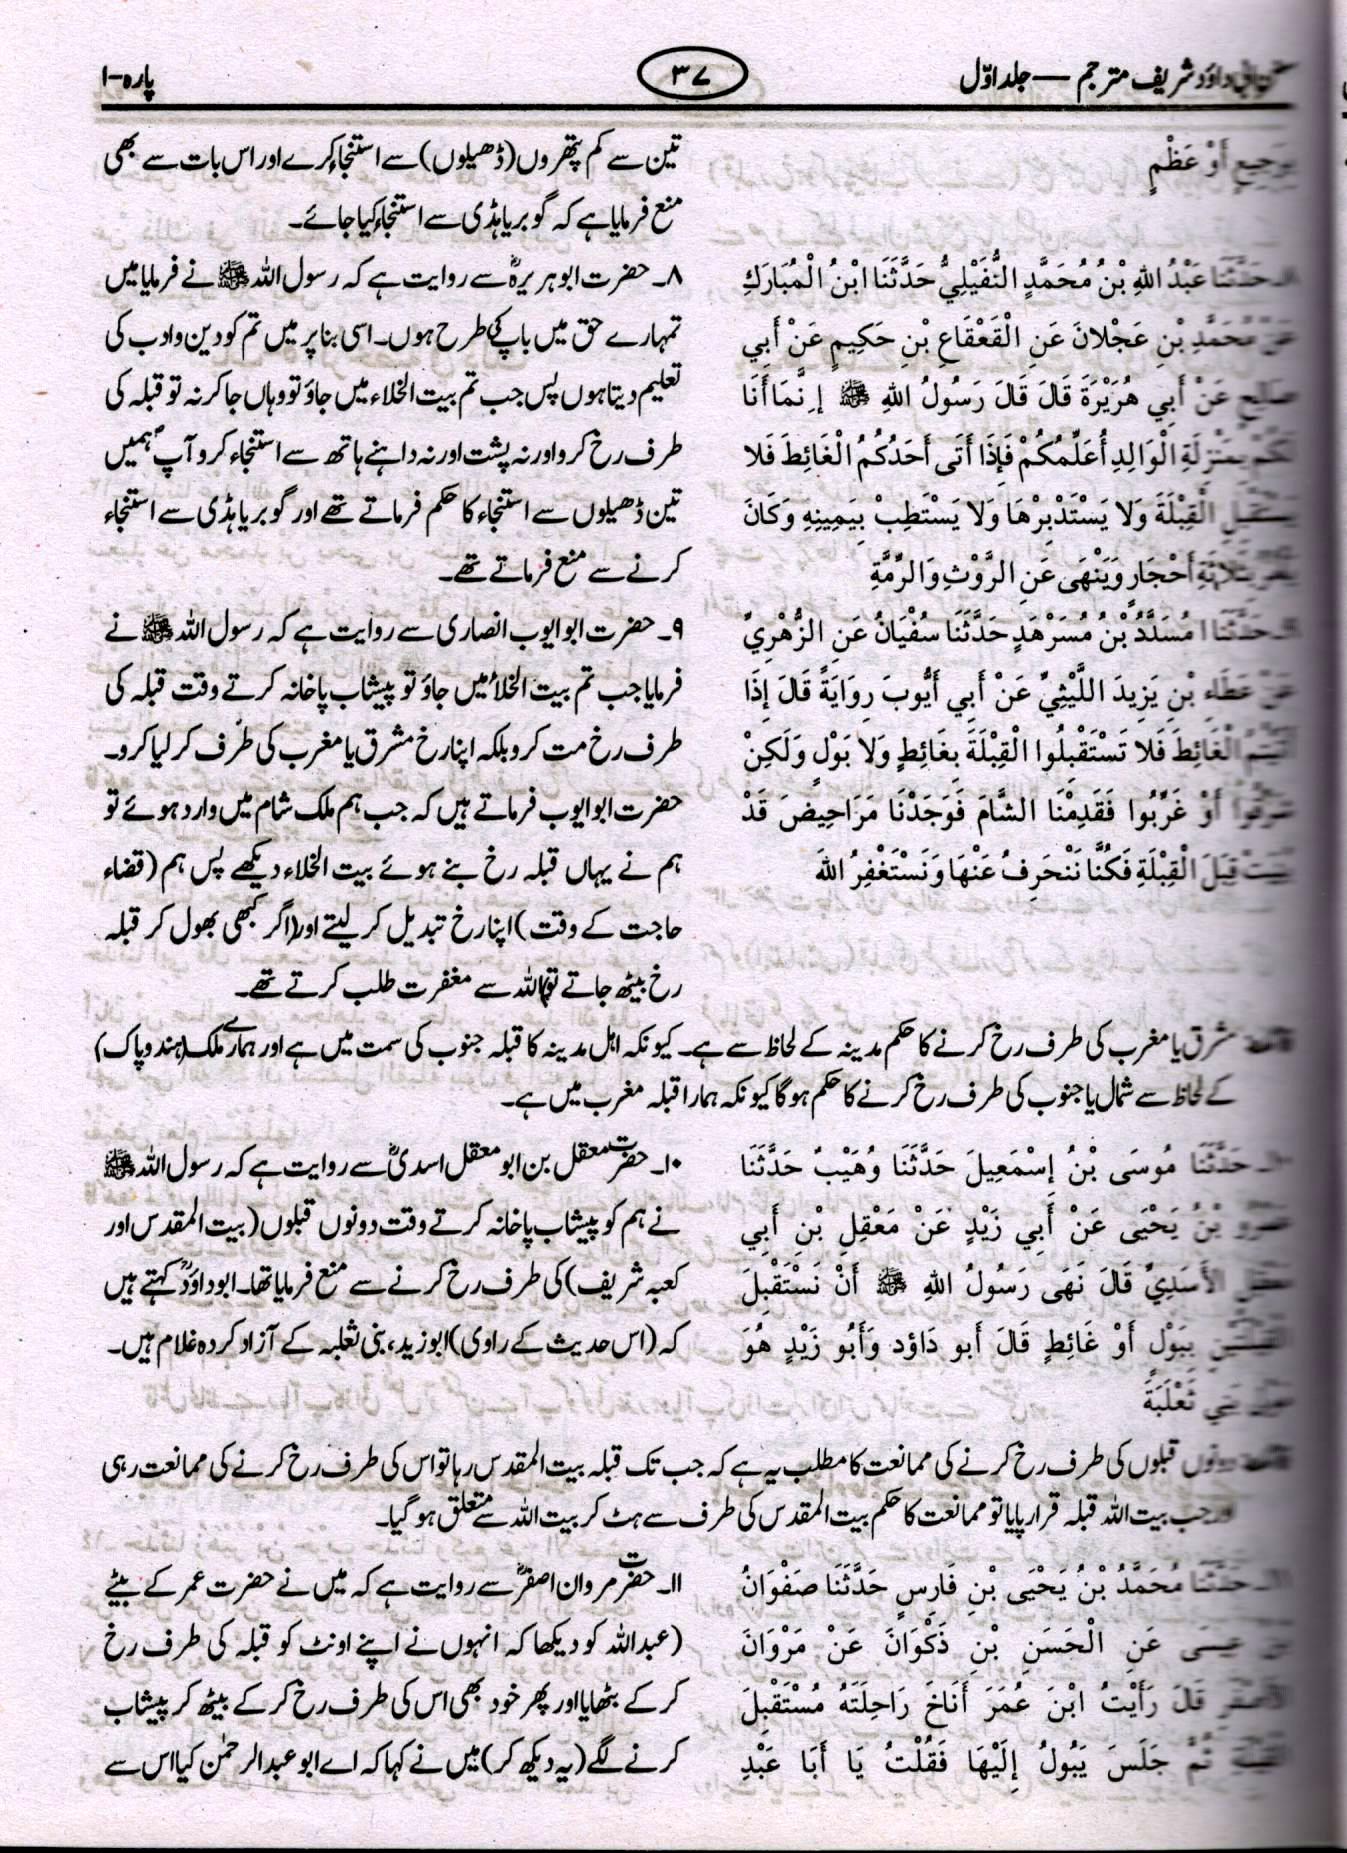 داؤد شریف مترجم — جلد اوّل
۳۷
پارہ-۱
أَوْ عَظْمٍ
حَدَّثَنَا عَبْدُ اللهِ بْنُ مُحَمَّدٍ النُّفَيْلِيُّ حَدَّثَنَا ابْنُ الْمُبَارَكِ
عَنْ مُحَمَّدِ بْنِ عَجْلانَ عَنِ الْقَعْقَاعِ بْنِ حَكِيمٍ عَنْ أَبِي
صَالِحٍ عَنْ أَبِي هُرَيْرَةَ قَالَ قَالَ رَسُولُ اللهِ ﷺ إِنَّمَا أَنَا
لَكُمْ بِمَنْزِلَةِ الْوَالِدِ أُعَلِّمُكُمْ فَإِذَا أَتَى أَحَدُكُمُ الْغَائِطَ فَلا
يَسْتَقْبِلِ الْقِبْلَةَ وَلا يَسْتَدْبِرْهَا وَلا يَسْتَطِبْ بِيَمِينِهِ وَكَانَ
بِثَلاثَةِ أَحْجَارٍ وَيَنْهَى عَنِ الرَّوْثِ وَالرِّمَّةِ
حَدَّثَنَا مُسَدَّدُ بْنُ مُسَرْهَدٍ حَدَّثَنَا سُفْيَانُ عَنِ الزُّهْرِيِّ
عَنْ عَطَاءِ بْنِ يَزِيدَ اللَّيْثِيِّ عَنْ أَبِي أَيُّوبَ رِوَايَةً قَالَ إِذَا
أَتَيْتُمُ الْغَائِطَ فَلا تَسْتَقْبِلُوا الْقِبْلَةَ بِغَائِطٍ وَلا بَوْلٍ وَلَكِنْ
شَرِّقُوا أَوْ غَرِّبُوا فَقَدِمْنَا الشَّامَ فَوَجَدْنَا مَرَاحِيضَ قَدْ
بُنِيَتْ قِبَلَ الْقِبْلَةِ فَكُنَّا نَنْحَرِفُ عَنْهَا وَنَسْتَغْفِرُ اللهَ
تین سے کم پتھروں (ڈھیلوں) سے استنجاء کرے اور اس بات سے بھی
منع فرمایا ہے کہ گوبر یا ہڈی سے استنجاء کیا جائے۔
۸۔ حضرت ابو ہریرہؓ سے روایت ہے کہ رسول اللہ ﷺ نے فرمایا میں
تمہارے حق میں باپ کی طرح ہوں۔ اسی بنا پر میں تم کو دین و ادب کی
تعلیم دیتا ہوں پس جب تم بیت الخلاء میں جاؤ تو وہاں جا کر نہ تو قبلہ کی
طرف رخ کرو اور نہ پشت اور نہ داہنے ہاتھ سے استنجاء کرو آپؐ ہمیں
تین ڈھیلوں سے استنجاء کا حکم فرماتے تھے اور گوبر یا ہڈی سے استنجاء
کرنے سے منع فرماتے تھے۔
۹۔ حضرت ابو ایوب انصاری سے روایت ہے کہ رسول اللہ ﷺ نے
فرمایا جب تم بیت الخلاء میں جاؤ تو پیشاب پاخانہ کرتے وقت قبلہ کی
طرف رخ مت کرو بلکہ اپنا رخ مشرق یا مغرب کی طرف کر لیا کرو۔
حضرت ابو ایوب فرماتے ہیں کہ جب ہم ملک شام میں وارد ہوئے تو
ہم نے یہاں قبلہ رخ بنے ہوئے بیت الخلاء دیکھے پس ہم (قضاء
حاجت کے وقت) اپنا رخ تبدیل کر لیتے اور (اگر کبھی بھول کر قبلہ
رخ بیٹھ جاتے تو) اللہ سے مغفرت طلب کرتے تھے۔
مشرق یا مغرب کی طرف رخ کرنے کا حکم مدینہ کے لحاظ سے ہے۔ کیونکہ اہل مدینہ کا قبلہ جنوب کی سمت میں ہے اور ہمارے ملک (ہند و پاک)
کے لحاظ سے شمال یا جنوب کی طرف رخ کرنے کا حکم ہوگا کیونکہ ہمارا قبلہ مغرب میں ہے۔
۱۰۔ حَدَّثَنَا مُوسَى بْنُ إِسْمَعِيلَ حَدَّثَنَا وُهَيْبٌ حَدَّثَنَا
عَمْرُو بْنُ يَحْيَى عَنْ أَبِي زَيْدٍ عَنْ مَعْقِلِ بْنِ أَبِي
مَعْقِلٍ الأَسَدِيِّ قَالَ نَهَى رَسُولُ اللهِ ﷺ أَنْ نَسْتَقْبِلَ
الْقِبْلَتَيْنِ بِبَوْلٍ أَوْ غَائِطٍ قَالَ أَبو دَاوُد وَأَبُو زَيْدٍ هُوَ
بَنِي ثَعْلَبَةَ
۱۰۔ حضرت معقل بن ابو معقل اسدیؓ سے روایت ہے کہ رسول اللہ ﷺ
نے ہم کو پیشاب پاخانہ کرتے وقت دونوں قبلوں (بیت المقدس اور
کعبہ شریف) کی طرف رخ کرنے سے منع فرمایا تھا۔ ابو داؤدؒ کہتے ہیں
کہ (اس حدیث کے راوی) ابو زید، بنی ثعلبہ کے آزاد کردہ غلام ہیں۔
دونوں قبلوں کی طرف رخ کرنے کی ممانعت کا مطلب یہ ہے کہ جب تک قبلہ بیت المقدس رہا تو اس کی طرف رخ کرنے کی ممانعت رہی
اور جب بیت اللہ قبلہ قرار پایا تو ممانعت کا حکم بیت المقدس کی طرف سے ہٹ کر بیت اللہ سے متعلق ہو گیا۔
۱۱۔ حَدَّثَنَا مُحَمَّدُ بْنُ يَحْيَى بْنِ فَارِسٍ حَدَّثَنَا صَفْوَانُ
بْنُ عِيسَى عَنِ الْحَسَنِ بْنِ ذَكْوَانَ عَنْ مَرْوَانَ
الأَصْفَرِ قَالَ رَأَيْتُ ابْنَ عُمَرَ أَنَاخَ رَاحِلَتَهُ مُسْتَقْبِلَ
الْقِبْلَةِ ثُمَّ جَلَسَ يَبُولُ إِلَيْهَا فَقُلْتُ يَا أَبَا عَبْدِ
۱۱۔ حضرت مروان اصفرؒ سے روایت ہے کہ میں نے حضرت عمر کے بیٹے
(عبداللہ کو دیکھا کہ انہوں نے اپنے اونٹ کو قبلہ کی طرف رخ
کر کے بٹھایا اور پھر خود بھی اس کی طرف رخ کر کے بیٹھ کر پیشاب
کرنے لگے (یہ دیکھ کر) میں نے کہا کہ اے ابو عبدالرحمٰن کیا اس سے